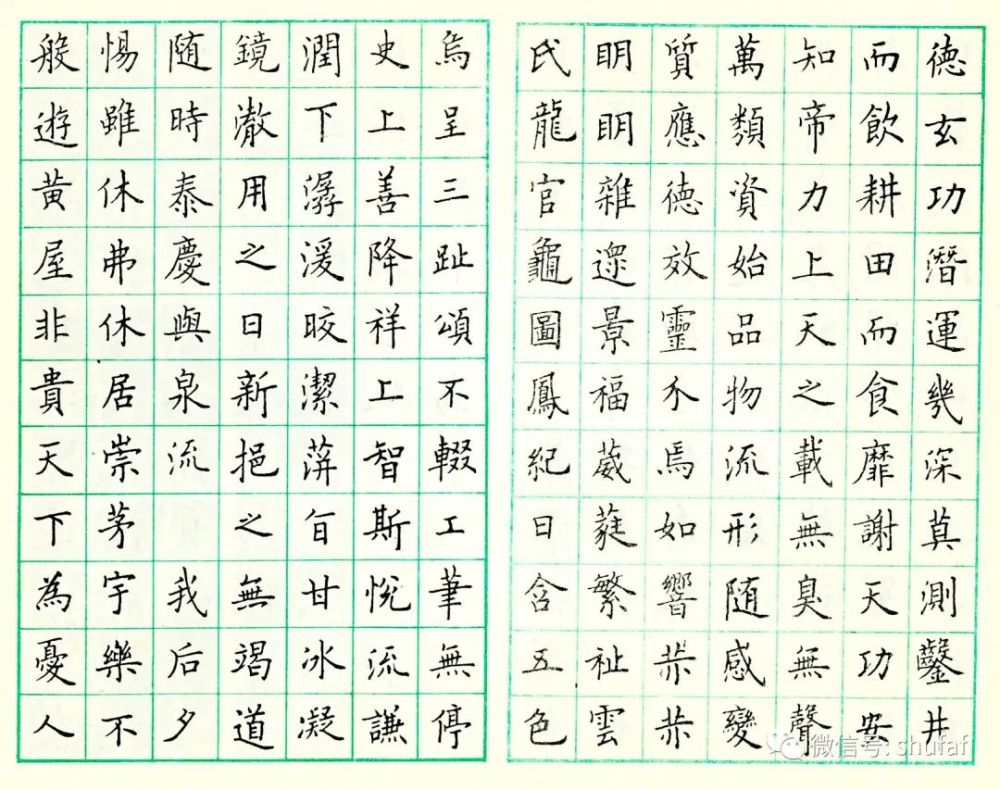 德玄功潛運幾深莫測鑿井
而飲耕田而食靡謝天功安
知帝力上天之載無臭無聲
萬類資始品物流形随感變
質應德效靈介焉如響赫赫
明明雜遝景福葳蕤繁祉雲
氏龍官龜圖鳳紀日含五色
烏呈三趾頌不輟工筆無停
史上善降祥上智斯悅流謙
潤下潺湲皎潔蓱旨甘冰凝
鏡澂用之日新挹之無竭道
随時泰慶與泉流 我后夕
惕雖休弗休居崇茅宇樂不
般遊黃屋非貴天下為憂人
微信号: shufaf